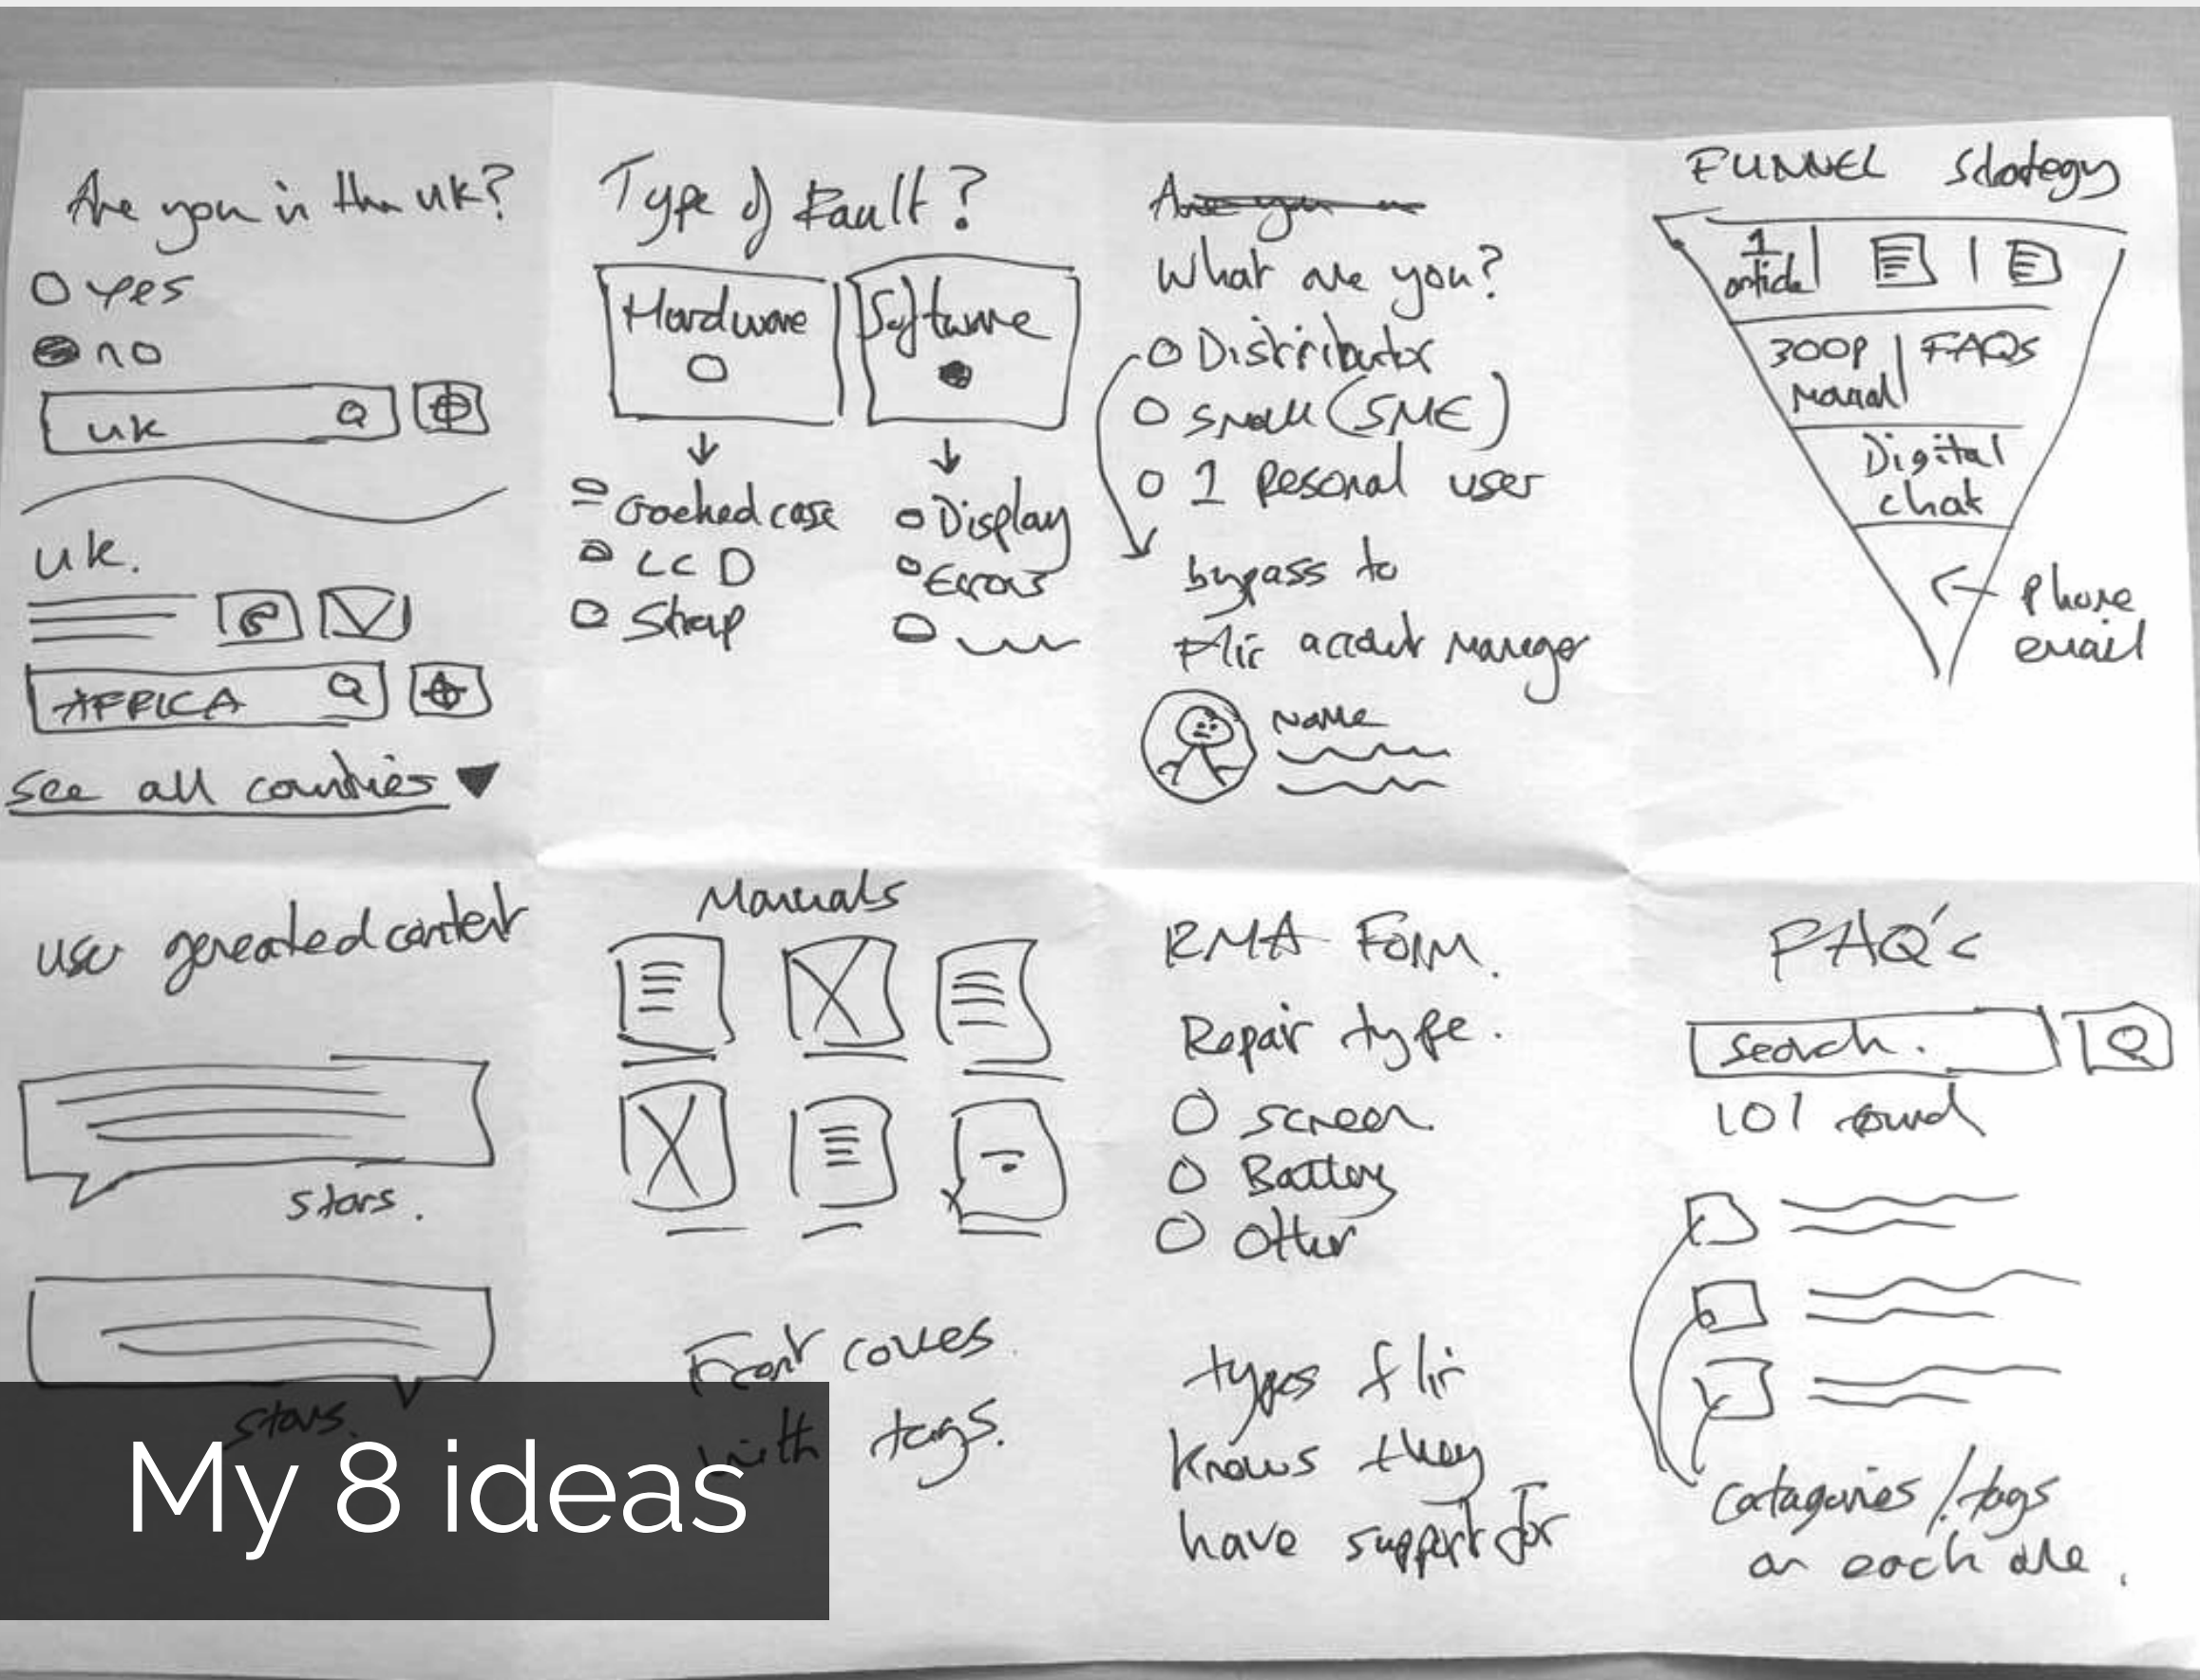 Are you in the uk?
yes
no
uk
uk.
AFRICA
see all countries
Type of Fault?
Hardware
Software
Cracked case
LCD
Strap
Display
Errors
What are you?
Distributor
small (SME)
1 Pesonal user
bypass to
Flir account manager
Name
FUNNEL Strategy
1 article
300p manual
FAQs
Digital chat
Phone
email
user genereated content
stars.
stars.
Manuals
Front covers
with tags.
RMA Form.
Repair type.
screen
Battery
Other
types flir
knows they
have support for
FAQ's
search.
101 found
catagories / tags
on each one.
My 8 ideas